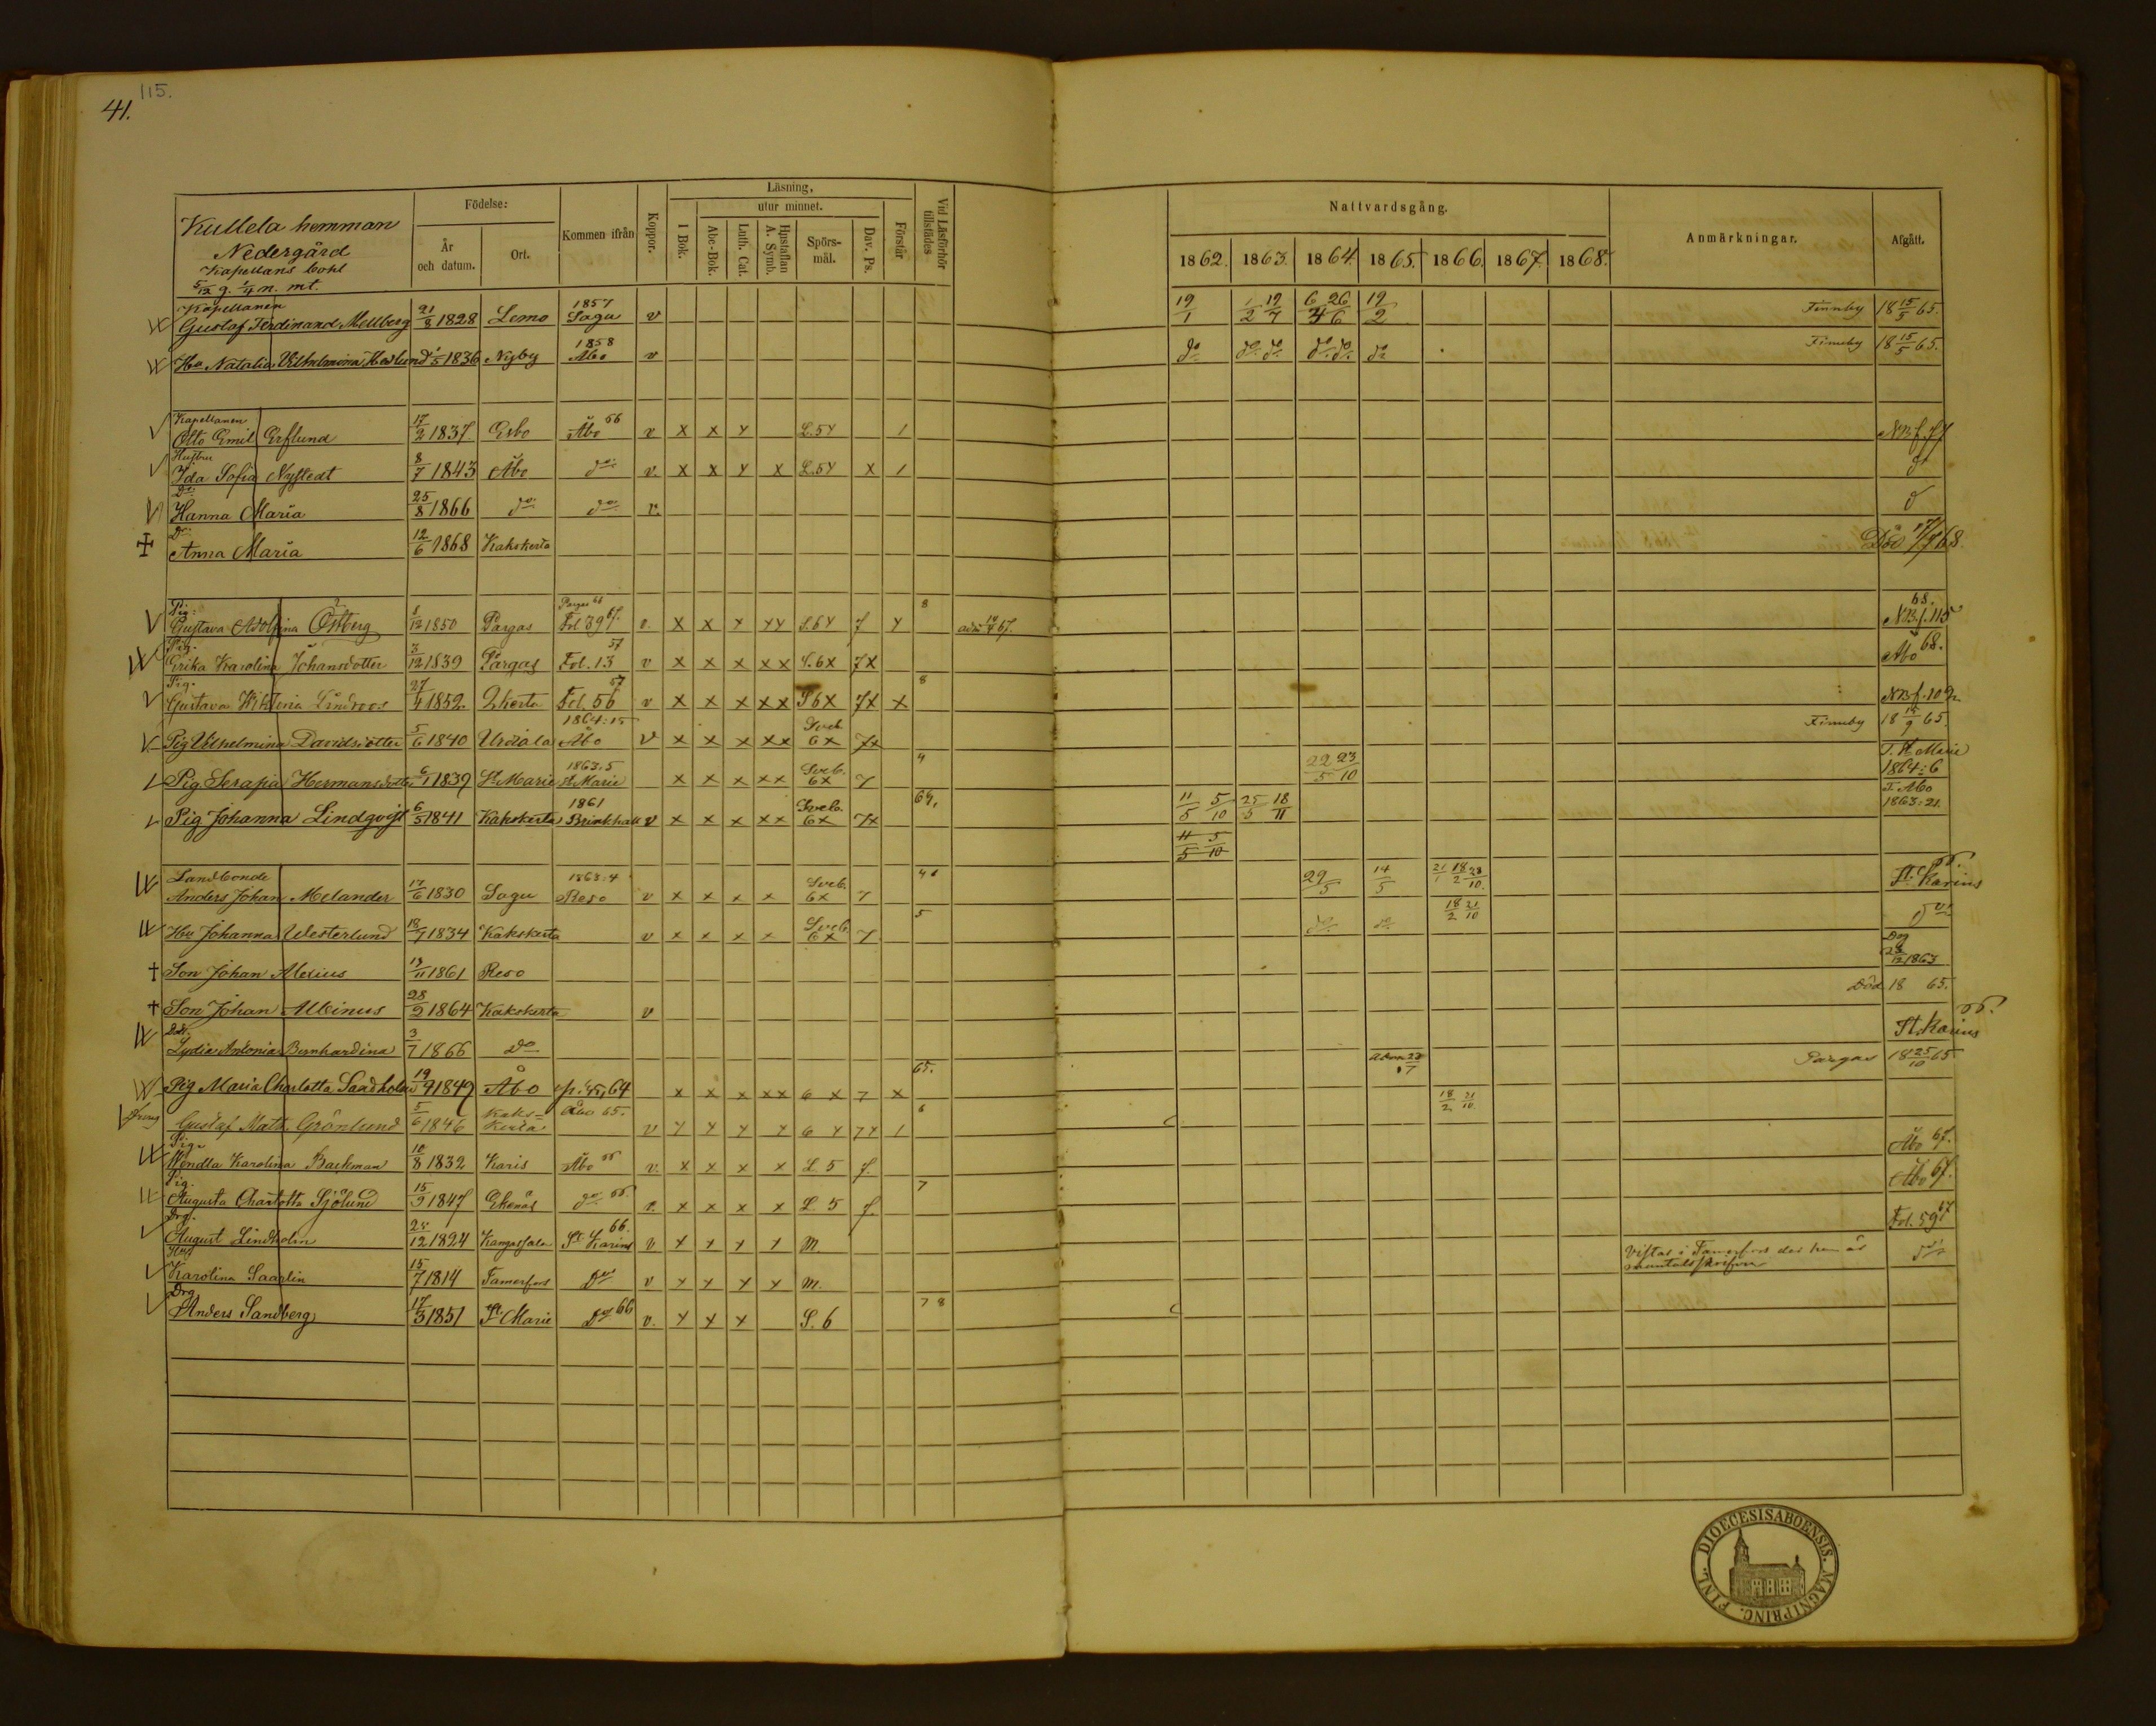 115.
41.
Kullela hemman
Nedergård
Kapellans bohl
5/12 g. 1/4 n. mt.
Födelse:
År och datum.
Ort.
Kommen ifrån
Koppor.
Läsning.
I Bok.
utur minnet.
Abc-Bok.
Luth. Cat.
Hustaflan A. Symb.
Spörsmål.
Dav. Ps.
Förstår
Vid Läsförhör tillstädes
Nattvardsgång.
1862. 1863. 1864. 1865. 1866. 1867. 1868.
Anmärkningar.
Afgått.
Kapellanen
Gustaf Ferdinand Mellberg 21/8 1828 Lemo 1857 Sagu v 19/1 1/2 19/7 26/6 19/2 Finnby 18 15/5 65.
Hu Natalia Vilhelmina Hedlund 1/5 1836 Nyby 1858 Åbo v do do do do do do Finnby 18 15/5 65.
Kapellanen
Otto Emil Erflund 17/2 1837 Esbo Åbo 66 v x x x L.5 x 1 NB f. 77
Hustru
Ida Sofia Nystedt 8/7 1843 Åbo do v. x x x x L.5 x x 1 do
Dr
Hanna Maria 25/8 1866 do do v.
Dr
Anna Maria 12/6 1868 Kakskerta Död 17/7 68.
Pig:
Gustava Adolfina Östberg 1/12 1850 Pargas Pargas Fol 39 67. v. x x x xx S.6 x 7 x 8 67. 68. NB. f. 115
Pig.
Erika Karolina Johansdotter 3/12 1839 Pargas Fol. 13 57 v x x x xx S.6x 7x Åbo 68.
Pig.
Gustava Lindroos 27/4 1852 Fol. 56 57 v x x x xx S 6x 7x x 8 NB f. 102
Pig Vilhelmina Davidsdotter 5/6 1840 Urdiala 1864:15 Åbo v x x x xx Sveb 6x 7x Finnby 18 15/9 65.
Pig Serafia Hermansdotter 6/1 1839 St Marie 1863:5 St Marie x x x xx Sveb. 6x 7 4 22/5 23/10 T. St Marie 1864:6
Pig Johanna Lindqvist 6/5 1841 Kakskerta 1861 Brinkhall v x x x xx Sveb. 6x 7x 11/5 5/10 25/5 18/11 T. Åbo 1863:21.
11/5 5/10
Landbonde
Anders Johan Melander 17/6 1830 Sagu 1863:4 Reso v x x x x Sveb. 6x 7 29/5 14/5 21/1 18/2 28/10. St. Karins
Hu Johanna Westerlund 18/7 1834 Kakskerta v x x x x Sveb. 6x 7 5 do do 18/2 21/10 do
Son Johan Alexius 13/11 1861 Reso Dog 12 1863
Son Johan Albinus 28/2 1864 Kakskerta v Död 18 65.
Dott.
Lydia Antonia Bernhardina 3/7 1866 Do St. Karins
Pig Maria Charlotta Sandholm 19/9 1849 Åbo p. 45, 64 x x x xx 6 x 7 x 65. Pargas 18 25/10 65
Dräng
Gustaf Math. Grönlund 5/6 1846 Kakskerta Åbo 65. v x x x x 6 x 7x 1 6 18/2 21/10
Pig.
Wendla Karolina Backman 10/8 1832 Karis Åbo 66 v. x x x x L 5 7. Åbo 67.
Pig.
Augusta Charlotta Sjölund 15/9 1847 Ekenäs do 66. v. x x x x L 5 7. 7 Åbo 67.
Drg.
August Lindholm 25/12 1824 Kangasala St. Karins 66. v x x x x m Fol. 59 67
Hus
Karolina Saarlin 15/7 1814 Tamerfors Do v x x x x m. Vistas i Tamerfors der hon är mantalsskrifven do
Drg
Anders Sandberg 17/3 1851 St. Marie Do 66 v. x x x S. 6 7 8
FINL. DIOECESIS ABOENSIS. MAGNI PRINC.